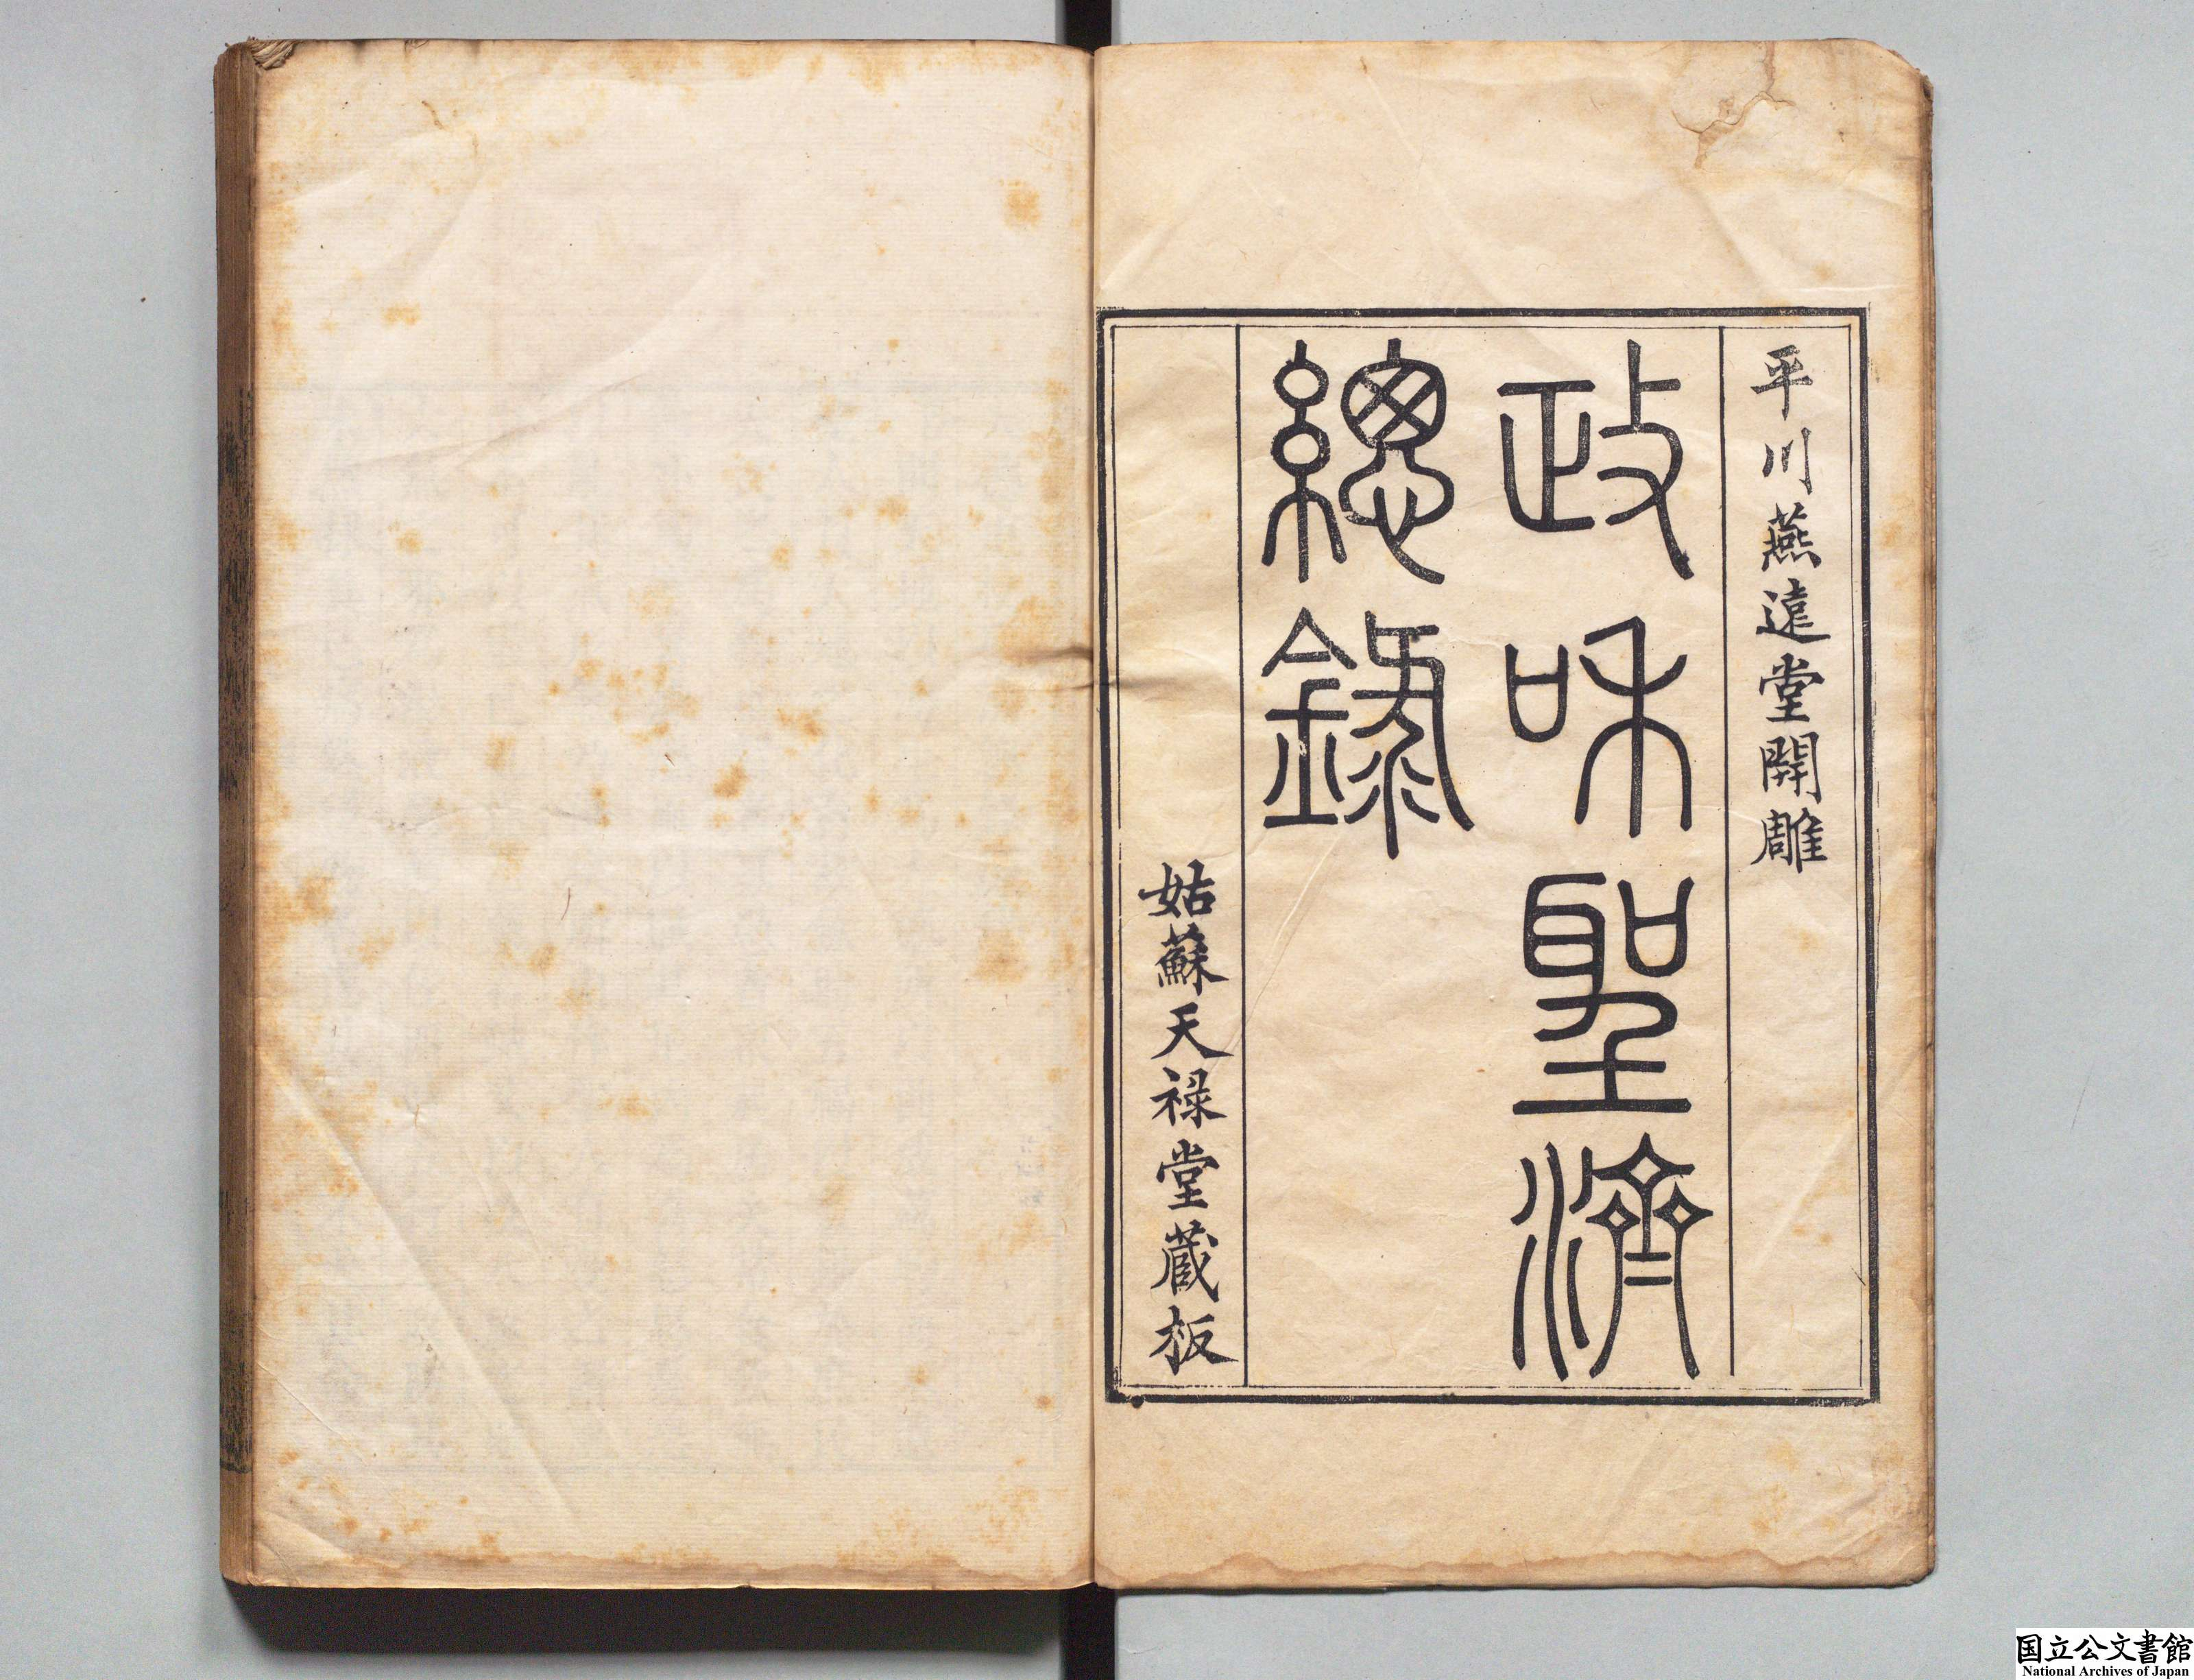 平川燕遠堂開雕
政和聖濟
總錄
姑蘇天祿堂藏板
国立公文書館
National Archives of Japan